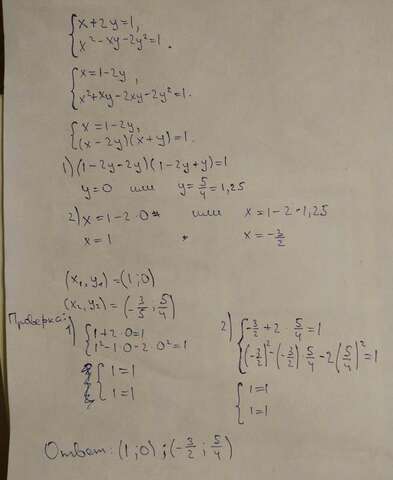 {x+2y=1,
x²-xy-2y²=1.
{x=1-2y,
x²+xy-2xy-2y²=1.
{x=1-2y,
(x-2y)(x+y)=1.
1)(1-2y-2y)(1-2y+y)=1
y=0 или y=5/4=1,25
2)x=1-2·0 или x=1-2·1,25
x=1 x=-3/2
(x₁,y₁)=(1;0)
(x₂,y₂)=(-3/5;5/4)
Проверка:
1) {1+2·0=1
1²-1·0-2·0²=1
{1=1
1=1
2) {-3/2+2·5/4=1
(-3/2)²-(-3/2)·5/4-2(5/4)²=1
{1=1
1=1
Ответ: (1;0);(-3/2;5/4)